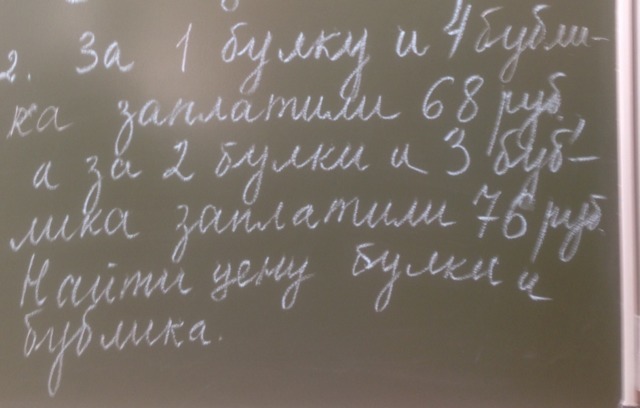 2. За 1 булку и 4 бубли-
ка заплатили 68 руб,
а за 2 булки и 3 буб-
лика заплатили 76 руб.
Найти цену булки и
бублика.